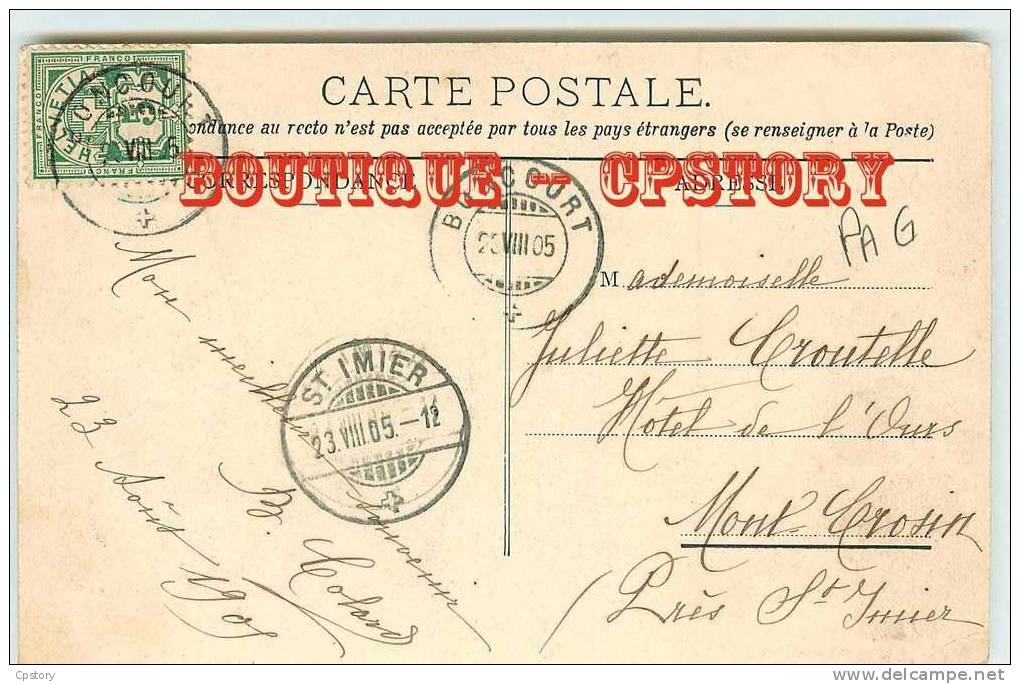 FRANCO
HELVETIA
CARTE POSTALE.
ondance au recto n'est pas acceptée par tous les pays étrangers (se renseigner à la Poste)
BOUTIQUE - CPSTORY
CORRESPONDANCE
ADRESSE.
BONCOURT
VIII 5
BONCOURT
23 VIII 05
PAG
Mademoiselle
Juliette Croutelle
Hôtel de l'Ours
Mont Crosin
(Près St Imier
ST. IMIER
23.VIII.05.-12
Mon meilleur souvenir
B. Colard
23 Août 1905
Cpstory
www.delcampe.net